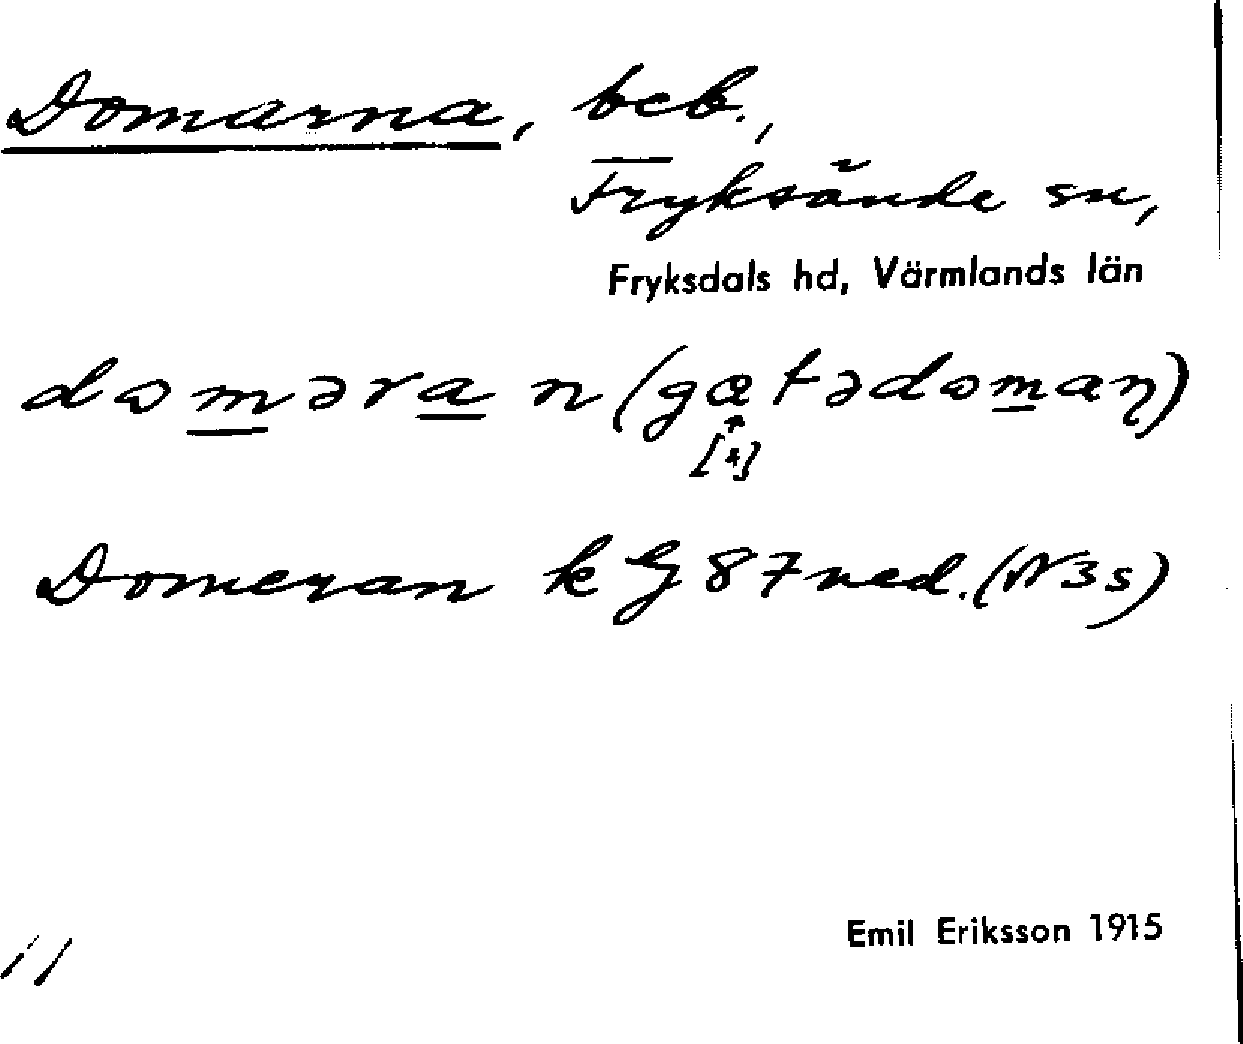 Domarna, beb.,
Fryksände sn,
Fryksdals hd, Värmlands län
dωməra n (gætədωmaŋ)
[4]
Domeran k G 87 ned. (N 3 s)
Emil Eriksson 1915
11